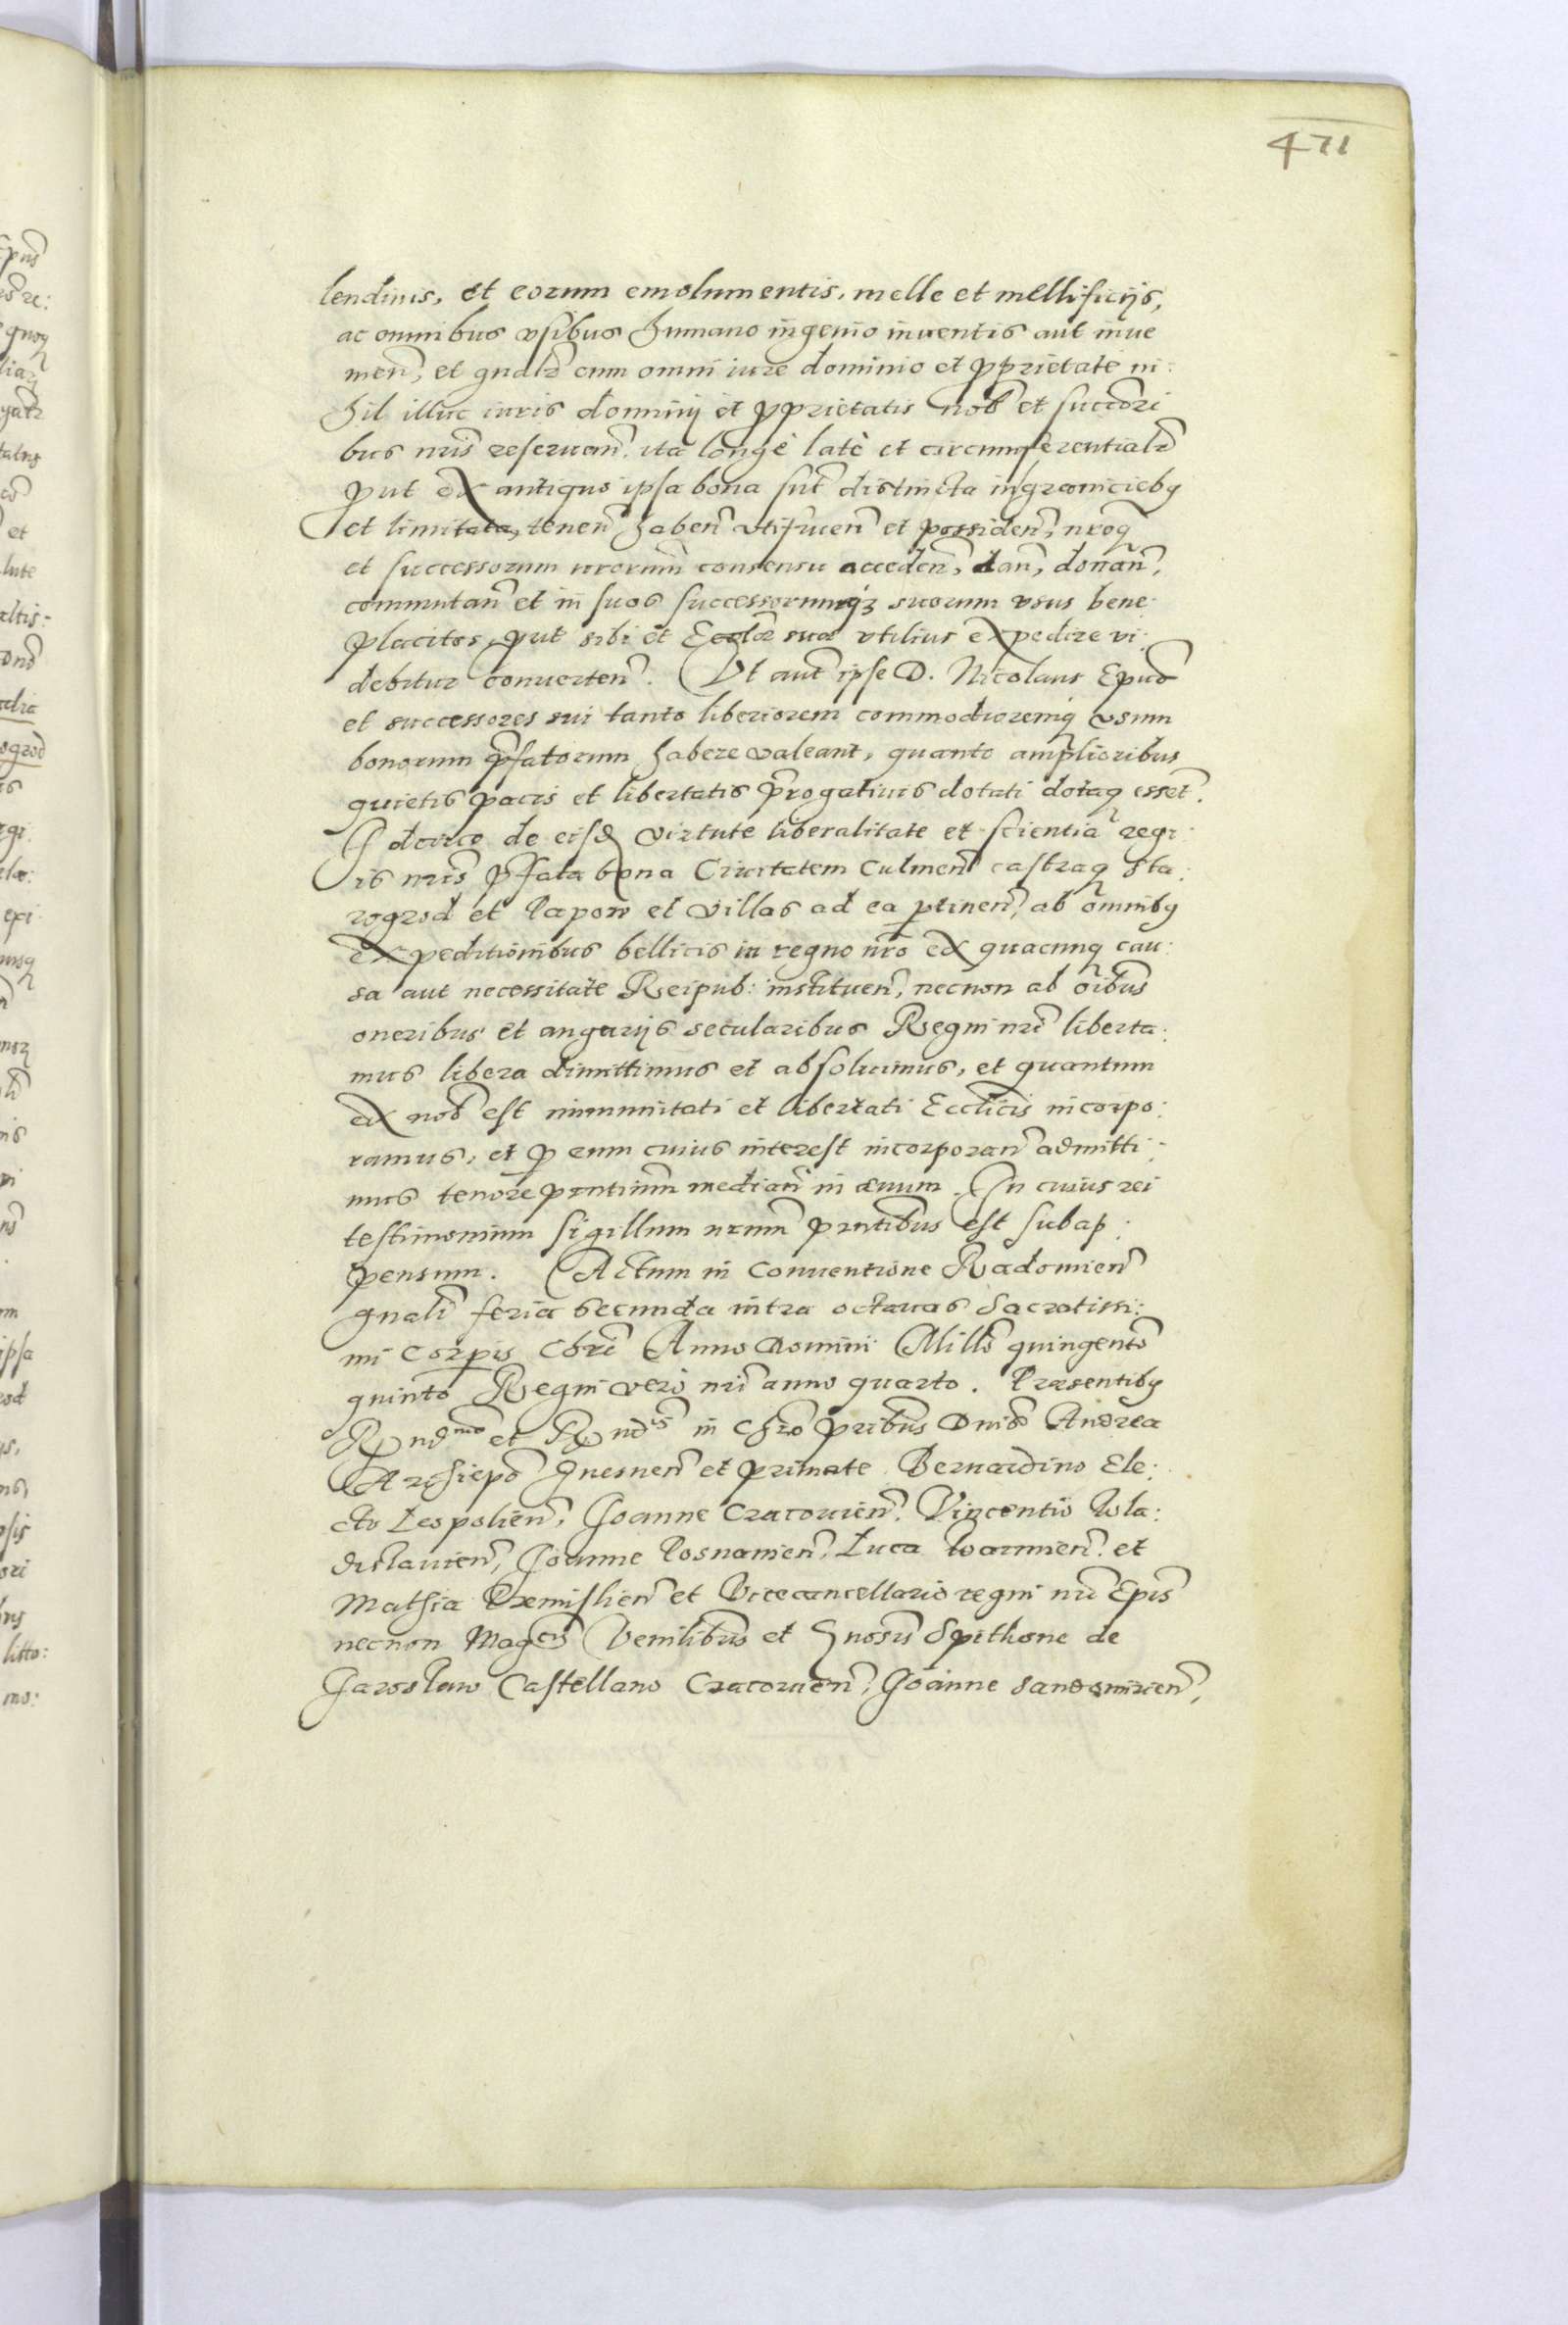 471
lendinis, et eorum emolumentis, melle et mellificijs,
ac omnibus vsibus humano ingenio inuentis aut inue
nien͂, et gnal͂r cum omni iure dominio et ꝓprietate ni:
hil illuc iuris dominij et ꝓprietatis nob͂ et succori͂
bus nris͂ reseruan͂. ita longè latè et circumferential͂r
ꝓut ex antiquo ipsa bona sut͂ distincta in graniciebꝯ
et limitata, tenen͂ haben͂ vtifruen͂ et possiden͂, nroqꝫ
et successorum nrorum͂ consensu acceden͂, dan͂, donan͂,
commutan͂ et in suos successorumqꝫ suorum vsus bene
placitos, ꝓut sibi et Ecclae͂ suae vtilius expedire vi:
debitur conuerten͂. Vt aut͂ ipse D. Nicolaus Epus͂
et successores sui tanto liberiorem commodioremqꝫ vsum
bonorum p͂fatorum habere valeant, quanto amplioribus
quietis pacis et libertatis p͂rogatiuis dotati dotaqꝫ esset͂.
Idcirco de eisd͂ virtute liberalitate et scientia regi:
is nris͂ p͂fata bona Ciuitatem Culmen͂ castraqꝫ Sta:
rogrod et Papow et villas ad ea ꝑtinen͂, ab omnibꝯ
expeditionibus bellicis in regno nro͂ ex quacunqꝫ cau:
sa aut necessitate Reipub: instituen͂, necnon ab oibus͂
oneribus et angarijs secularibus Regni nri͂ liberta:
mus libera dimittimus et absoluimus, et quantum
ex nob͂ est immunitati et libertati Ecclicis͂ incorpo:
ramus, et ꝑ eum cuius interest incorporan͂ admitti:
mus tenore pntium͂ median͂ in aeuum. In cuius rei
testimonium sigillum nrum͂ pntibus͂ est subap:
pensum. Actum in Conuentione Radomien͂
gnali͂ feria secunda intra octauas Sacratissi:
mi Corpis͂ Chri͂ Anno Domini Millo͂ quingento͂
quinto Regni vero nri͂ anno quarto. Praesentibꝯ
Rndmo͂ et Rndis͂ in Chro͂ pribus͂ Dnis͂ Andrea
Archiepo͂ Gnesnen͂ et primate Bernardino Ele:
cto Leopolien͂, Joanne Cracouien͂. Vincentio Wla:
dislauien͂, Joanne Posnanien͂, Luca Warmien͂. et
Mathia Premislien͂ et Vicecancellario regni nri͂ Epis͂
necnon Magcis͂ Venilibus͂ et Gnosis͂ Spithone de
Jaroslaw Castellano Cracouien͂, Joanne Sandomirien͂,